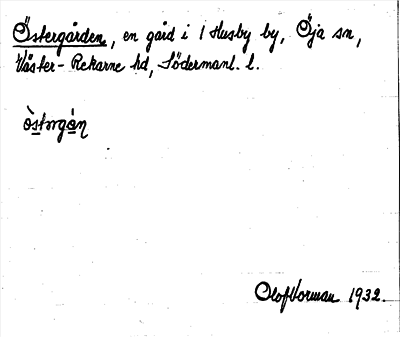 Östergården, en gård i 1 Husby by, Öja sn,
Väster-Rekarne hd, Södermanl. l.
Olof Vorman 1932.